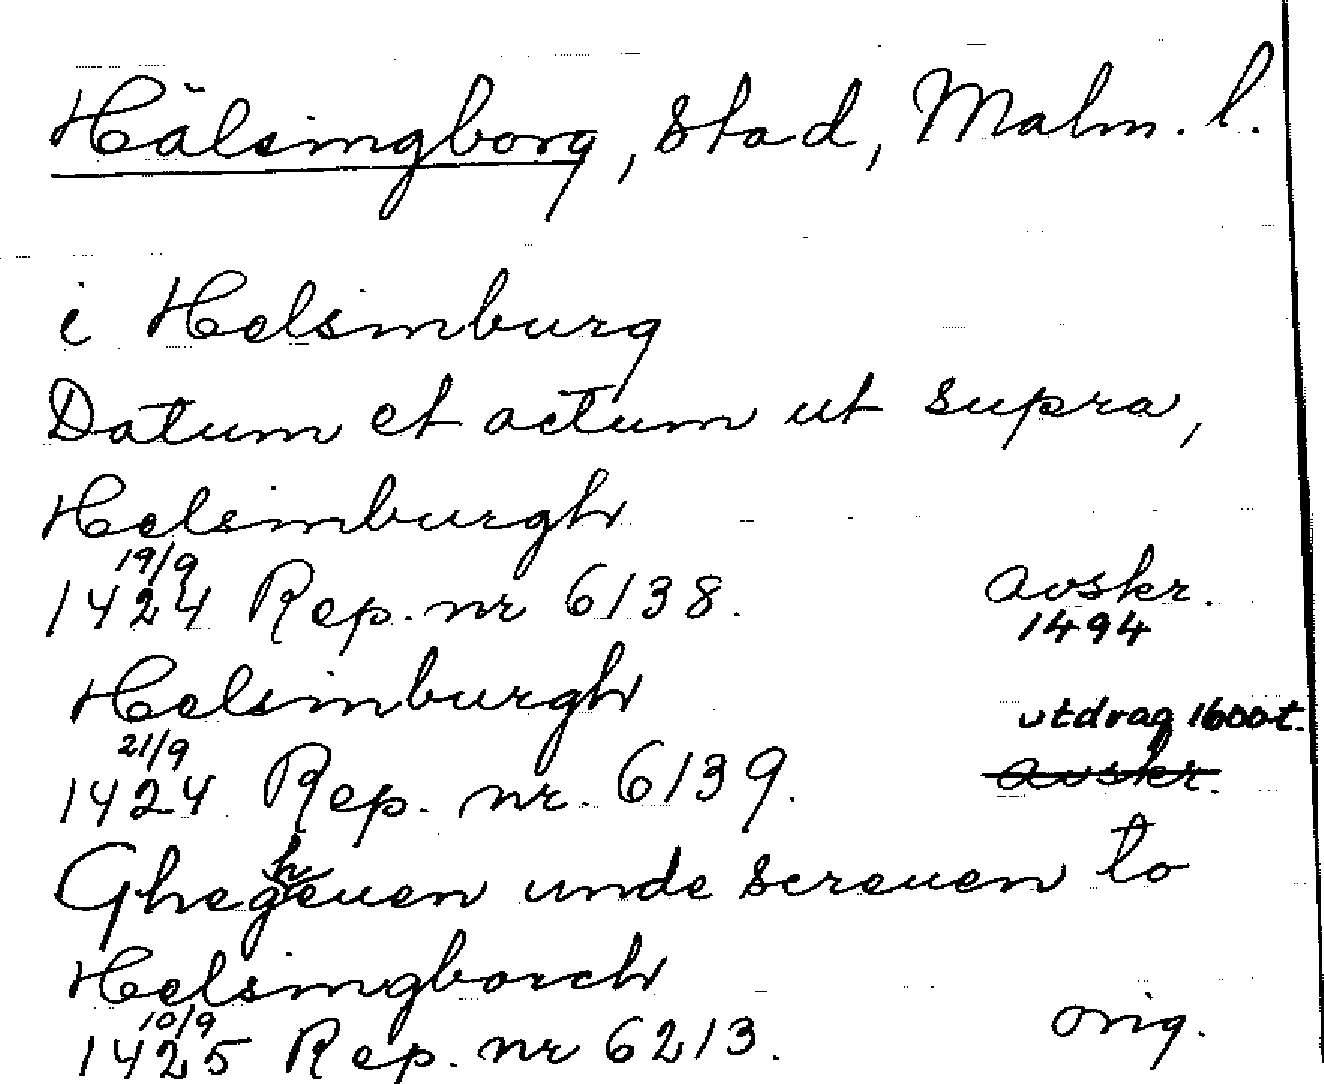 Hälsingborg, stad, Malm. l.
i Helsinburg
Datum et actum ut supra,
Helsinburgh
19/9
1424 Rep. nr 6138. avskr.
1494
Helsinburgh
utdrag 1600-t.
21/9
1424 Rep. nr. 6139. avskr.
Ghegheuen unde screuen to
Helsingborch
10/9
1425 Rep. nr 6213. orig.